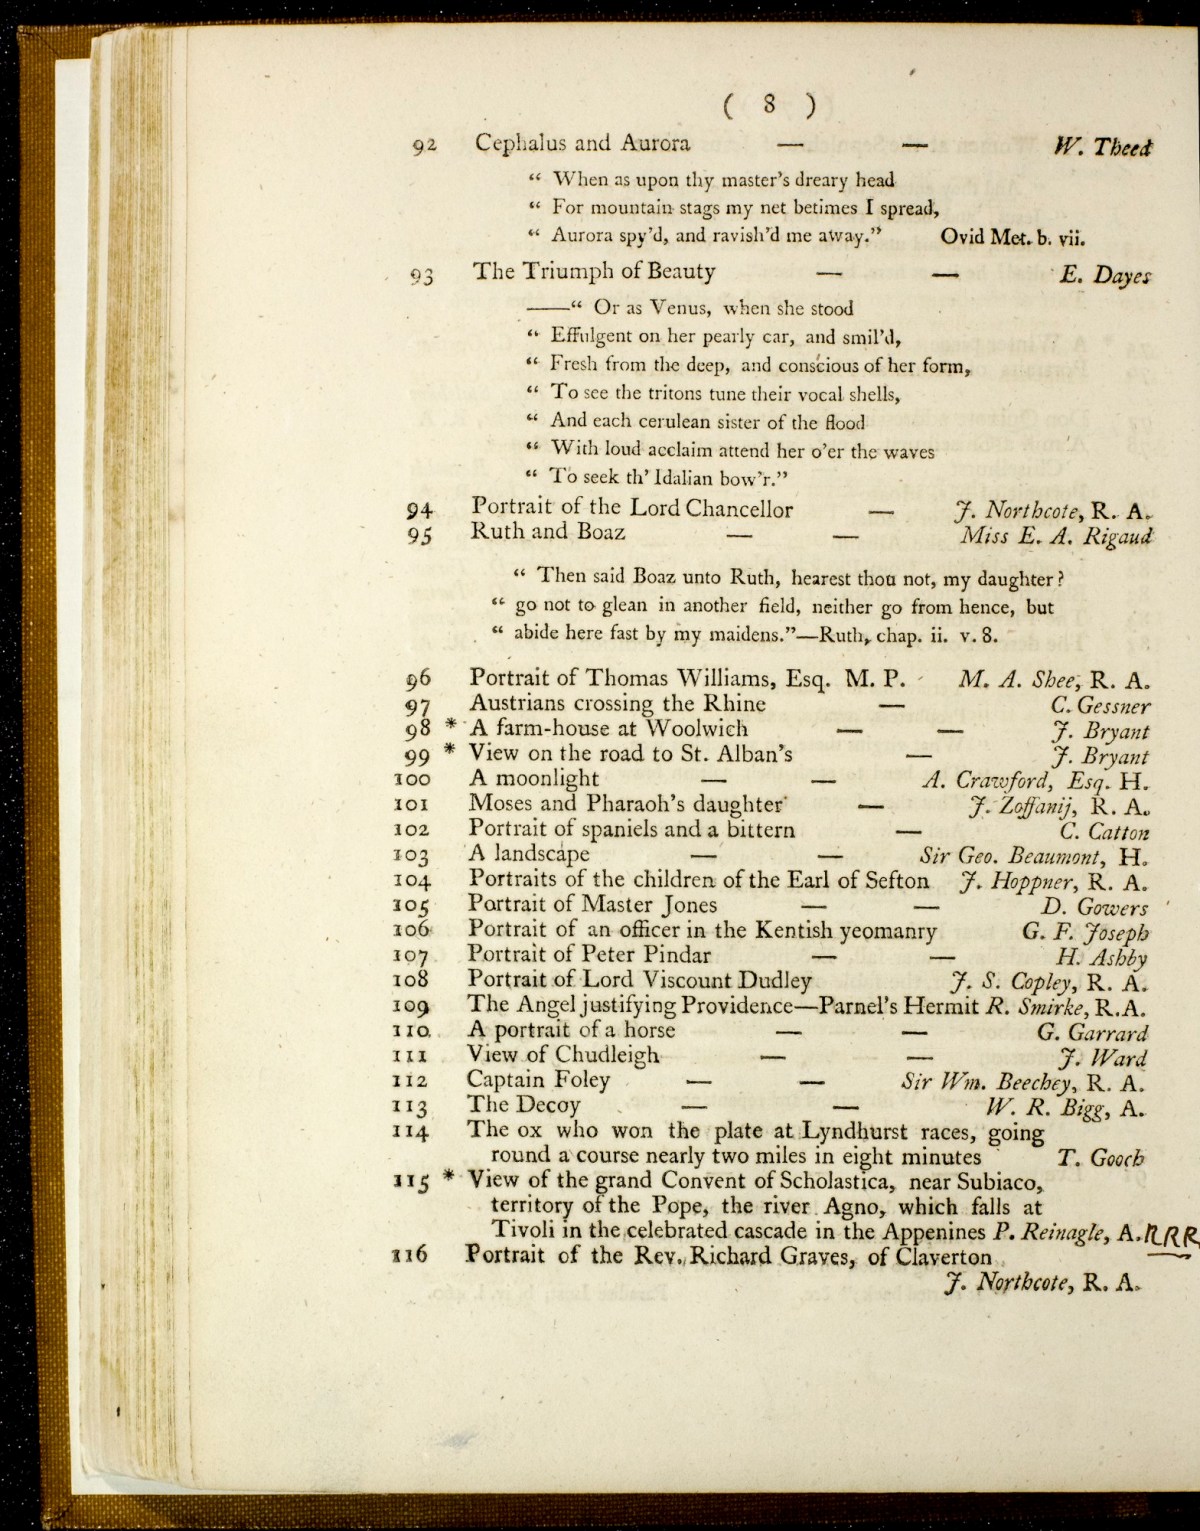 ( 8 )
92 Cephalus and Aurora — — W. Theed
“ When as upon thy master's dreary head
“ For mountain stags my net betimes I spread,
“ Aurora spy'd, and ravish'd me away.” Ovid Met. b. vii.
93 The Triumph of Beauty — — E. Dayes
——“ Or as Venus, when she stood
“ Effulgent on her pearly car, and smil'd,
“ Fresh from the deep, and conscious of her form,
“ To see the tritons tune their vocal shells,
“ And each cerulean sister of the flood
“ With loud acclaim attend her o'er the waves
“ To seek th' Idalian bow'r.”
94 Portrait of the Lord Chancellor — J. Northcote, R. A.
95 Ruth and Boaz — — Miss E. A. Rigaud
“ Then said Boaz unto Ruth, hearest thou not, my daughter ?
“ go not to glean in another field, neither go from hence, but
“ abide here fast by my maidens.”—Ruth, chap. ii. v. 8.
96 Portrait of Thomas Williams, Esq. M. P. M. A. Shee, R. A.
97 Austrians crossing the Rhine — C. Gessner
98 * A farm-house at Woolwich — — J. Bryant
99 * View on the road to St. Alban's — J. Bryant
100 A moonlight — — A. Crawford, Esq. H.
101 Moses and Pharaoh's daughter — J. Zoffanij, R. A.
102 Portrait of spaniels and a bittern — C. Catton
103 A landscape — — Sir Geo. Beaumont, H.
104 Portraits of the children of the Earl of Sefton J. Hoppner, R. A.
105 Portrait of Master Jones — — D. Gowers
106 Portrait of an officer in the Kentish yeomanry G. F. Joseph
107 Portrait of Peter Pindar — — H. Ashby
108 Portrait of Lord Viscount Dudley J. S. Copley, R. A.
109 The Angel justifying Providence—Parnel's Hermit R. Smirke, R.A.
110 A portrait of a horse — — G. Garrard
111 View of Chudleigh — — J. Ward
112 Captain Foley — — Sir Wm. Beechey, R. A.
113 The Decoy — — W. R. Bigg, A.
114 The ox who won the plate at Lyndhurst races, going
round a course nearly two miles in eight minutes T. Gooch
115 * View of the grand Convent of Scholastica, near Subiaco,
territory of the Pope, the river Agno, which falls at
Tivoli in the celebrated cascade in the Appenines P. Reinagle, A. RRR
116 Portrait of the Rev. Richard Graves, of Claverton
J. Northcote, R. A.